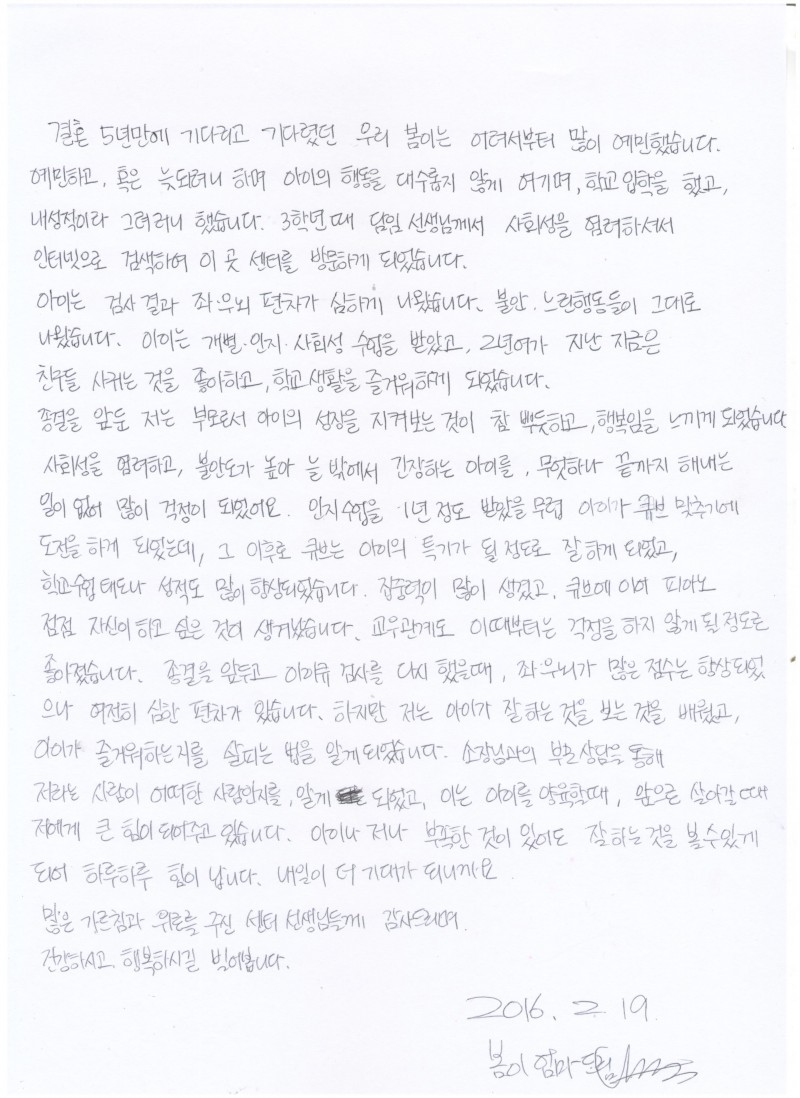 결혼 5년만에 기다리고 기다렸던 우리 봄이는 어려서부터 많이 예민했습니다.
예민하고, 혹은 늦되려니 하며 아이의 행동을 대수롭지 않게 여기며, 학교 입학을 했고,
내성적이라 그려려니 했습니다. 3학년때 담임 선생님께서 사회성을 염려하셔서
인터넷으로 검색하여 이 곳 센터를 방문하게 되었습니다.
아이는 검사 결과 좌·우뇌 편차가 심하게 나왔습니다. 불안·느린행동들이 그대로
나왔습니다. 아이는 개별·인지·사회성 수업을 받았고, 2년여가 지난 지금은
친구들 사귀는 것을 좋아하고, 학교 생활을 즐거워하게 되었습니다.
종결을 앞둔 저는 부모로서 아이의 성장을 지켜보는 것이 참 뿌듯하고, 행복임을 느끼게 되었습니다
사회성을 염려하고, 불안도가 높아 늘 밖에서 긴장하는 아이를, 무엇하나 끝까지 해내는
일이 없어 많이 걱정이 되었어요. 인지수업을 1년 정도 받았을 무렵 아이가 큐브 맞추기에
도전을 하게 되었는데, 그 이후로 큐브는 아이의 특기가 될 정도로 잘 하게 되었고,
학교수업 태도나 성적도 많이 향상되었습니다. 집중력이 많이 생겼고, 큐브에 이어 피아노
점점 자신이 하고 싶은 것이 생겨났습니다. 교우관계도 이때부터는 걱정을 하지 않게 될 정도로
좋아졌습니다. 종결을 앞두고 아이큐 검사를 다시 했을때, 좌·우뇌가 많은 점수는 향상되었
으나 여전히 심한 편차가 있습니다. 하지만 저는 아이가 잘 하는 것을 보는 것을 배웠고,
아이가 즐거워하는지를 살피는 법을 알게 되었습니다. 소장님과의 부모 상담을 통해
저라는 사람이 어떠한 사람인지를, 알게 되었고, 이는 아이를 양육할때, 앞으로 살아갈 때
저에게 큰 힘이 되어주고 있습니다. 아이나 저나 부족한 것이 있어도 잘 하는 것을 볼 수 있게
되어 하루하루 힘이 납니다. 내일이 더 기대가 되니까요
많은 가르침과 위로를 주신 센터 선생님들께 감사드리며
건강하시고, 행복하시길 빌어봅니다.
2016. 2. 19.
봄이 엄마 드림